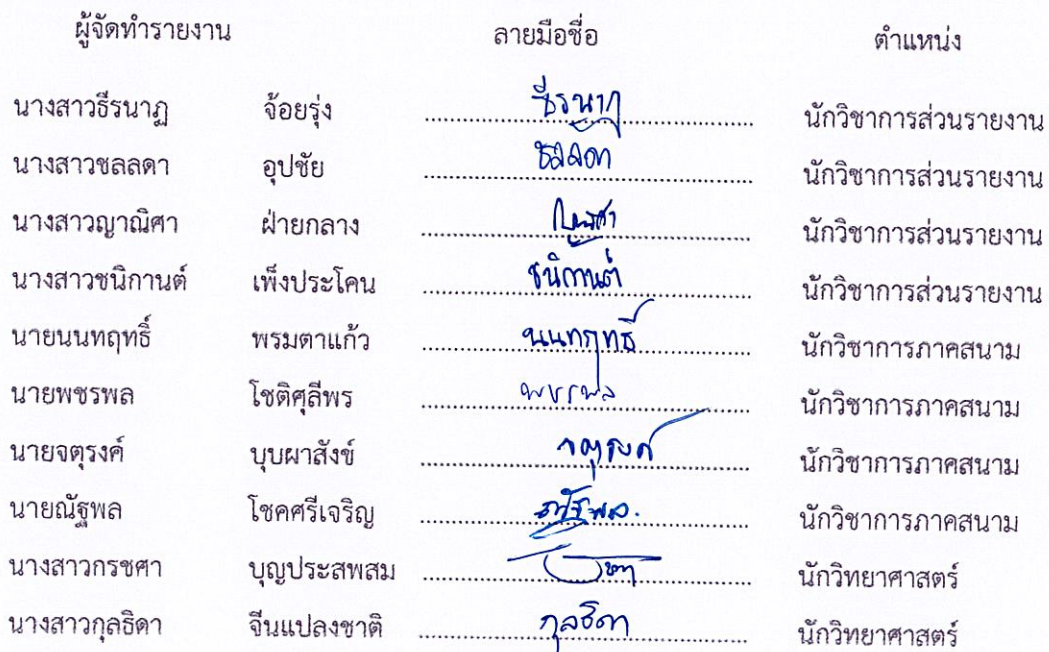 ผู้จัดทำรายงาน ลายมือชื่อ ตำแหน่ง
นางสาวธีรนาฏ จ้อยรุ่ง ธีรนาฏ นักวิชาการส่วนรายงาน
นางสาวชลลดา อุปชัย ชลลดา นักวิชาการส่วนรายงาน
นางสาวญาณิศา ฝ่ายกลาง นักวิชาการส่วนรายงาน
นางสาวชนิกานต์ เพ็งประโคน ชนิกานต์ นักวิชาการส่วนรายงาน
นายนนทฤทธิ์ พรมตาแก้ว นนทฤทธิ์ นักวิชาการภาคสนาม
นายพชรพล โชติศุลีพร พชรพล นักวิชาการภาคสนาม
นายจตุรงค์ บุบผาสังข์ จตุรงค์ นักวิชาการภาคสนาม
นายณัฐพล โชคศรีเจริญ ณัฐพล. นักวิชาการภาคสนาม
นางสาวกรชศา บุญประสพสม นักวิทยาศาสตร์
นางสาวกุลธิดา จีนแปลงชาติ กุลธิดา นักวิทยาศาสตร์